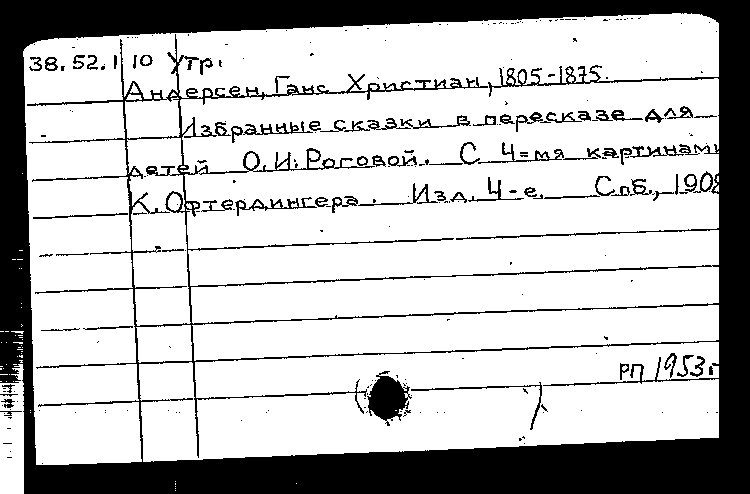 38.52.1 10 Утр.
Андерсен, Ганс Христиан, 1805-1875.
Избранные сказки в пересказе для
детей О.И.Роговой. С 4=мя картинами
К.Офтердингера. Изд. 4-е. Спб., 1908
РП 1953г